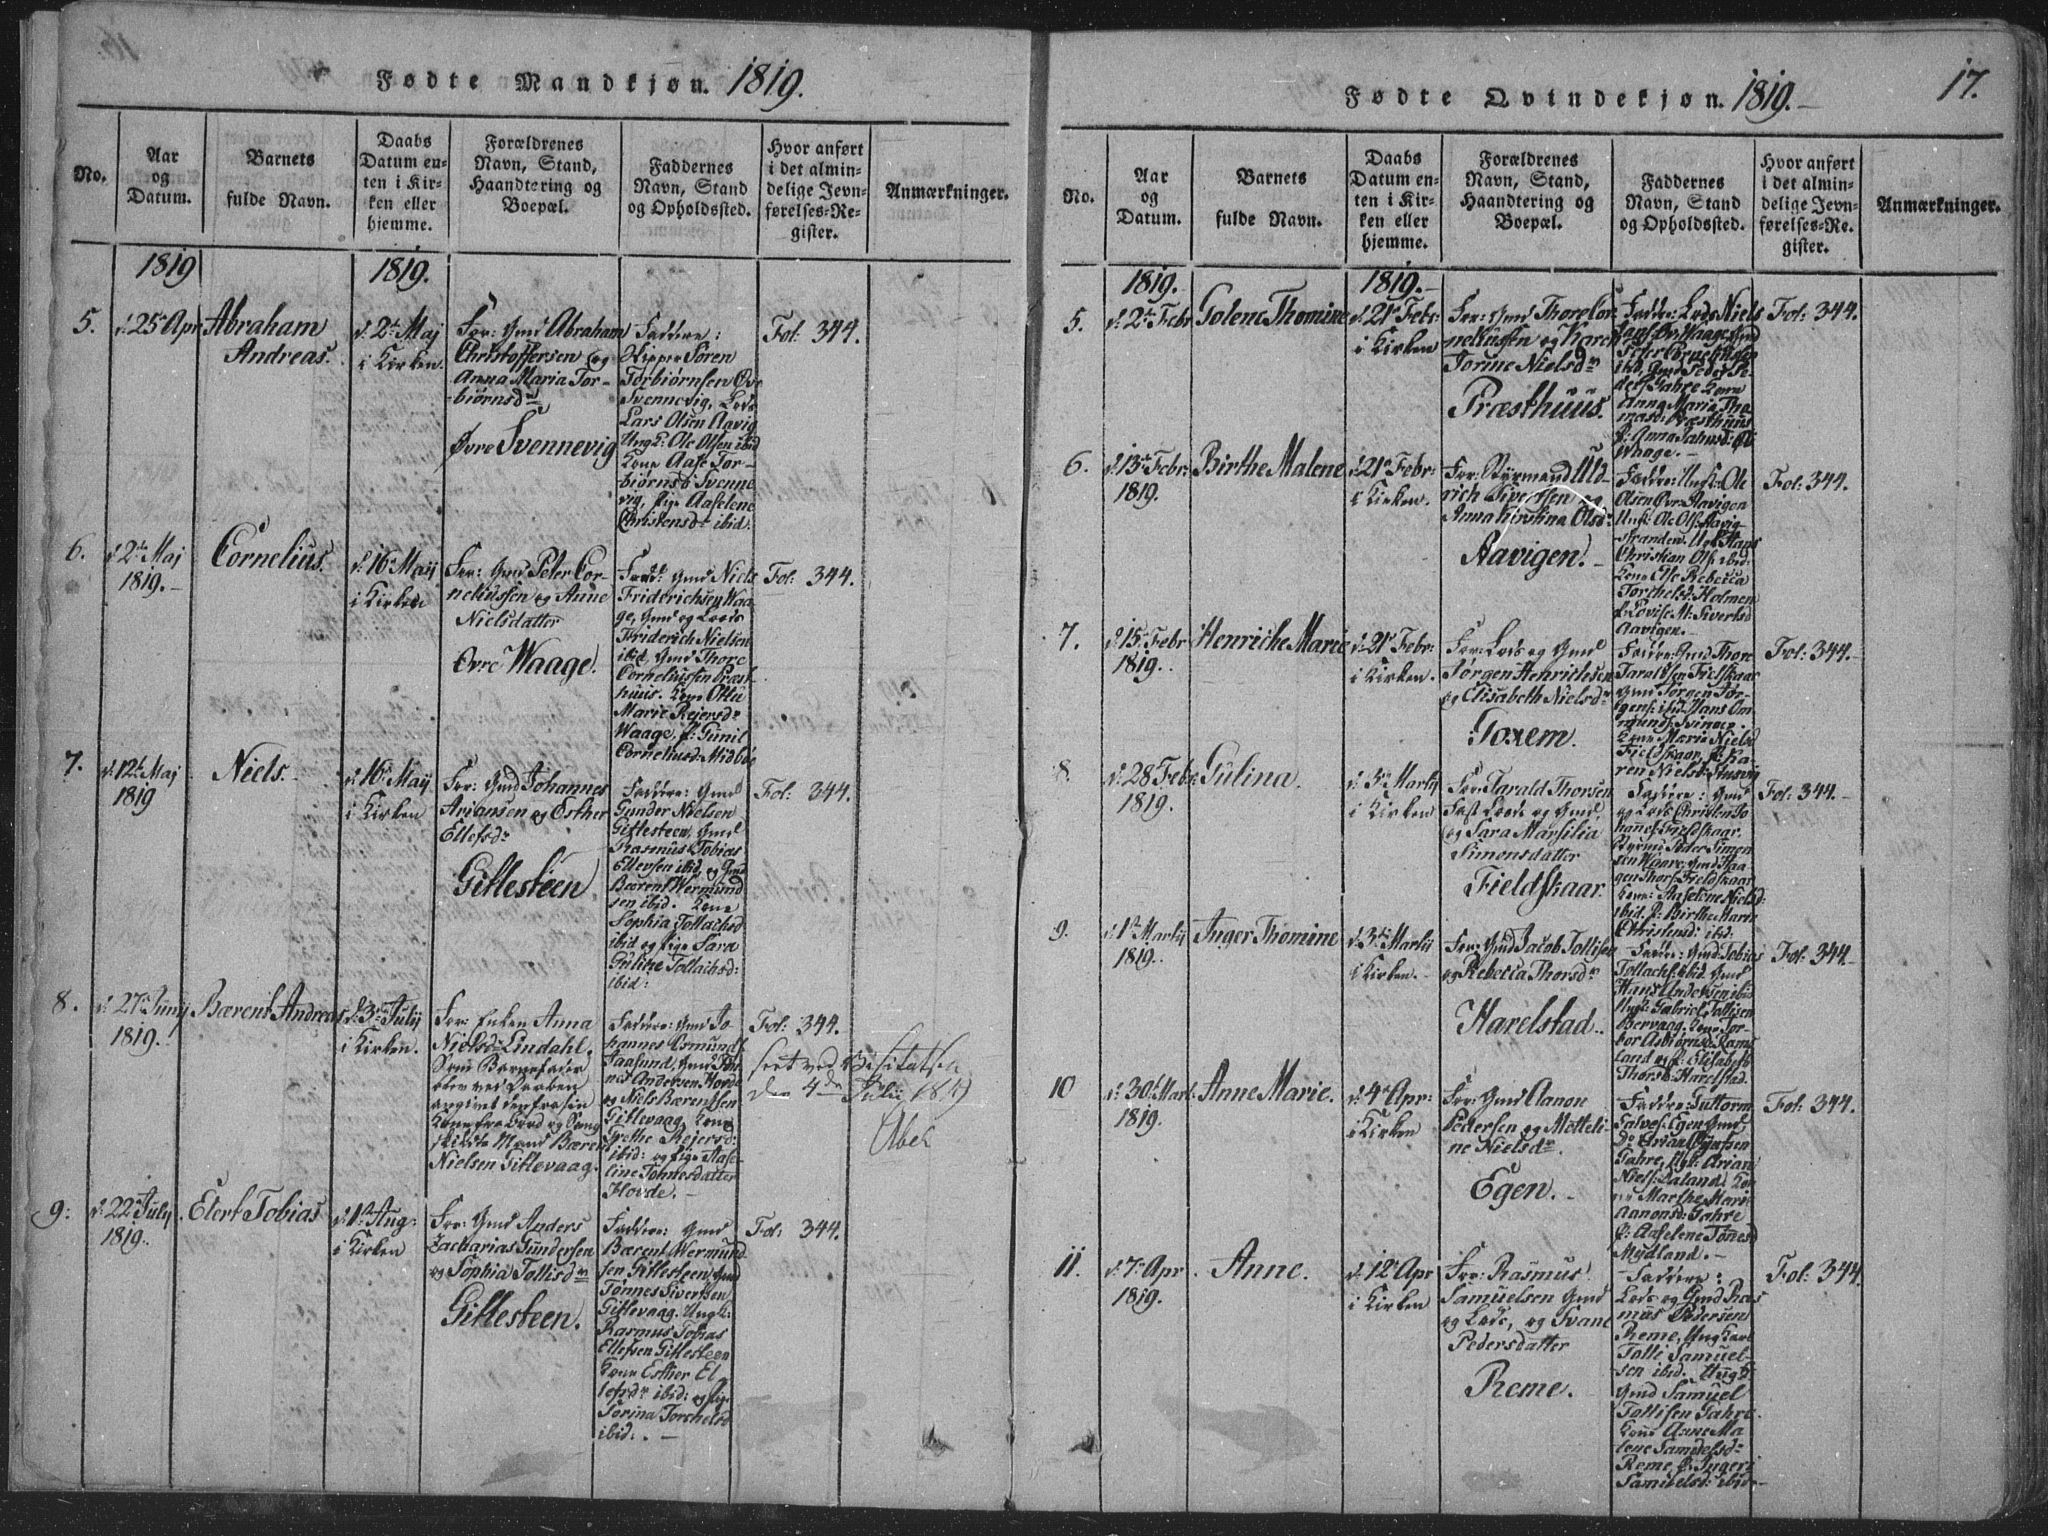 Fødte Mandkjøn. 1819.
No.
Aar
og
Datum.
Barnets
fulde Navn.
Daabs
Datum en-
ten i Kir-
ken eller
hjemme.
Forældrenes
Navn, Stand,
Haandtering og
Boepæl.
Faddernes
Navn, Stand
og Opholdssted.
Hvor anført
i det almin-
delige Jevn-
førelses-Re-
gister.
Anmærkninger.
1819
1819.
5.
d: 25de Apr
Abraham
Andreas.
d: 2de Maj
i Kirken.
For: Gmd Abraham
Christoffersen og
Anna Maria Tor-
biørnsdr
Øvre Svennevig
Faddere:
Skipper Søren
Torbiørnsen Øv:
Svennevig, Lods
Lars Olsen Aavig
Ungk: Ole Olsen ibid
Kone Aase Tor-
biørnsd: Svenne
vig, Pige Aaselene
Christensdr ibid.
Fol: 344.
6.
d: 2de Maj
1819.
Cornelius.
d: 16 Maij
i Kirken
For: Gmd Peter Cor-
neliussen og Anne
Nielsdatter
Øvre Waage.
Fadd: Gmd Niels
Friderichsen Waa-
ge, Gmd og Lods
Friderich Nielsen
ibid, Gmd Thore
Corneliussen Præst-
huus. Kone Ottu
Marie Reiersdr
Waage, P: Gunil
Corneliusd: Midbøe
Fol: 344.
7.
d: 12te Maj
1819
Niels.
d: 16 Maij
i Kirken
For: Gmd Johannes
Ariansen og Esther
Ellefsdr
Gitlesteen
Faddere: Gmd
Gunder Nielsen
Gitlesteen, Gmd
Rasmus Tobias
Ellevsen ibid, og Gmd
Bærent Wermund
sen ibid. Kone
Sophia Tollachsd
ibid og Pige Sara
Guline Tollachsd:
ibid:
Fol: 344.
8.
d: 27 Junij
1819.
Bærent Andreas
d: 3de Julij
i Kirken.
For: Enken Anna
Nielsdr Lindahl,
Som Barnefader
blev ved Daaben
angivet den fra sin
Kone fra Bord og Seng
skildte Mand Bæren
Nielsen Gitlevaag.
Faddere: Gmd Jo-
hannes Osmunds
Jaasund, Gmd Tøn
nes Andersen Hovde
og Niels Bærentsen
Gitlevaag, Kone
Grethe Reiersd:
ibid: og Pige Aase-
line Tønnesdatter
Hovde.
Fol: 344.
seet ved Visitatsen
den 4de Julii 1819
Abel
9.
d: 22 Julij
1819.
Elert Tobias
d: 1te Aug:
i Kirken
For: Gmd Anders
Zacharias Gundersen
og Sophia Tollisdr
Gitlesteen.
Faddere: Gmd
Bærent Wermund-
sen Gitlesteen, Gmd
Tønnes Sivertsen
Gitlevaag. Ungk:
Rasmus Tobias
Ellefsen Gitlesteen
Kone Esther El-
lefsdr ibid: og Pige
Sorina Torchelsd
ibid:.
Fol: 344.
Fødte Qvindekjøn. 1819.
17.
No.
Aar
og
Datum.
Barnets
fulde Navn.
Daabs
Datum en-
ten i Kir-
ken eller
hjemme.
Forældrenes
Navn, Stand,
Haandtering og
Boepæl.
Faddernes
Navn, Stand
og Opholdssted.
Hvor anført
i det almin-
delige Jevn-
førelses-Re-
gister.
Anmærkninger.
1819.
1819.
5.
d: 2de Febr
Golene Thomine
d: 21de Febr:
i Kirken
For: Gmd Thore Cor-
neliussen og Karen
Torine Nielsdr
Præsthuus.
Faddere: Lods Niels
Peter Corneliussen
ibid, Gmd Peder Pe-
ders: Jahre Kone
Anna Maria Tho-
masd: Præsthuus
P: Anna
Waage.
Fol: 344.
6.
d: 13de Febr:
1819.
Birthe Malene
d: 21de Febr:
i Kirken.
For: Styrmand Uld-
rich Sivertsen og
Anna Kirstina Olsdr
Aavigen.
Faddere: Ungk: Ole
Olsen Øvre Aavigen
Ungk: Ole Ols: Aavig-
stranden. Ungk Hans
Christian Ols: ibid:
Kone Else Rebecca
Torchelsd: Holmen
P: Lovise M: Sivertsd
Aavigen.
Fol: 344.
7.
d: 15de Febr
1819.
Henriche Marie
d: 21de Febr:
i Kirken.
For: Lods og Gmd
Jørgen Henrichsen
og Elisabeth Nielsdr
Goxem.
Faddere: Gmd Thore
Taraldsen Fieldskaar
Gmd Jørgen Jør-
gens: ibid. Hans Om-
munds: Svinøer.
Kone Maria Nielsd
Fieldskaar, P: Ka-
ren Nielsd:
Fol: 344.
8.
d: 28 Febr:
1819.
Gulina.
d: 3de Martij
i Kirken
For: Tarald Thorsen
Fast Lods og Gmd,
og Sara Marsilia
Simonsdatter
Fieldskaar.
Faddere: Gmd
og Lods Christen Jo-
hannes: Fieldskaar.
Styrmd Peder Simon
sen Waare, Gmd Aa-
gen Thors: Fieldskaar
Kone: Aaselene Nielsd
ibid. P: Birthe Maria
Christensd: ibid.
Fol: 344.
9.
d: 1te Martij
1819.
Inger Thomine
d: 3de Martij
i Kirken.
For: Gmd Jacob Tollisen
og Rebecca Thorsdr
Harelstad.
Faddere: Gmd Tobias
Tollachs: ibid. Gmd
Hans Andersen ibid
Ungk: Gabriel Tollisen
Bervaag, Kone Tor-
bor Asbiørnsd: Rams
land og P: Elisabeth
Thorsd: Harelstad.
Fol: 344.
10
d: 30te Mart:
1819.
Anne Marie.
d: 4de Apr:
i Kirken
For: Gmd Aanon
Pedersen og Metteli-
ne Nielsdr.
Egen.
Faddere: Guttorm
Salves: Egen, Gmd
Jahre, Ungk: Arian
Niels: Saland, Ko-
ne Marthe Marie
Aanonsd: Jahre
P: Aaselene Tønesd
Mydland.
Fol: 344.
11.
d: 7de Apr
1819.
Anne.
d: 12te Apr
i Kirken
For: Rasmus
Samuelsen Gmd
og Lods, og Svane
Pedersdatter
Reme.
Faddere:
Lods og Gmd Ras
mus Pedersen
Reme, Ungkarl
Tolli Samuel-
sen ibid. Ungk:
Gmd Samuel
Tollisen Jahre.
Kone Anne Ma
lene Samuelsdr
Reme, P: Ingeri
Samuelsd: ibid
Fol: 344